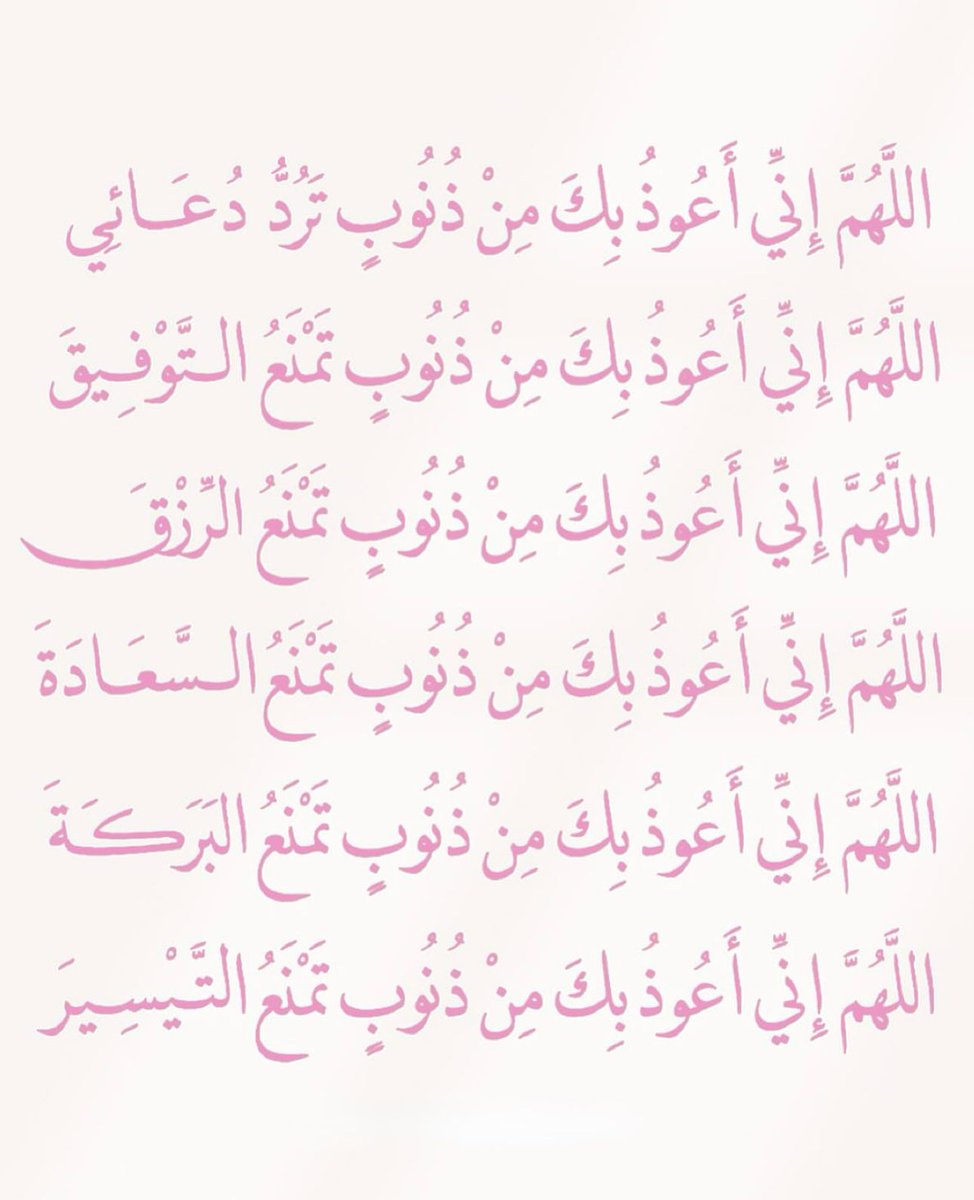 اللَّهُمَّ إِنِّي أَعُوذُ بِكَ مِنْ ذُنُوبٍ تَرُدُّ دُعَائِي
اللَّهُمَّ إِنِّي أَعُوذُ بِكَ مِنْ ذُنُوبٍ تَمْنَعُ التَّوْفِيقَ
اللَّهُمَّ إِنِّي أَعُوذُ بِكَ مِنْ ذُنُوبٍ تَمْنَعُ الرِّزْقَ
اللَّهُمَّ إِنِّي أَعُوذُ بِكَ مِنْ ذُنُوبٍ تَمْنَعُ السَّعَادَةَ
اللَّهُمَّ إِنِّي أَعُوذُ بِكَ مِنْ ذُنُوبٍ تَمْنَعُ البَرَكَةَ
اللَّهُمَّ إِنِّي أَعُوذُ بِكَ مِنْ ذُنُوبٍ تَمْنَعُ التَّيْسِيرَ